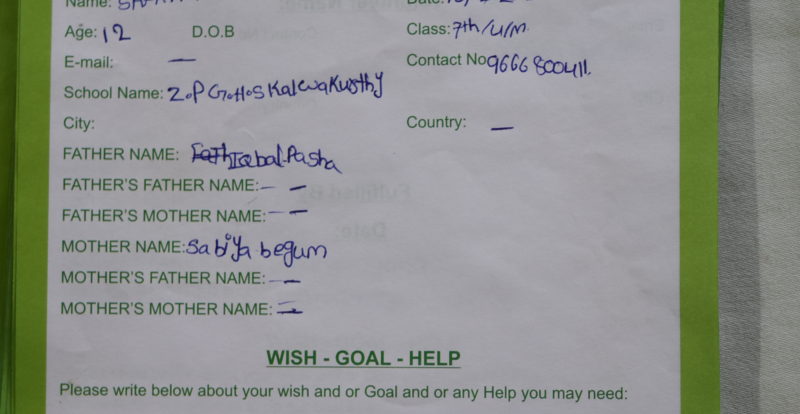 Name:
Age: 12 D.O.B Class: 7th/U/M
E-mail: — Contact No 9666800411.
School Name: Z.P G.H.S Kalwakurthy
City: Country: —
FATHER NAME: Iqbal.Pasha
FATHER'S FATHER NAME:– –
FATHER'S MOTHER NAME:– –
MOTHER NAME: Sabiya begum
MOTHER'S FATHER NAME:– –
MOTHER'S MOTHER NAME: –
WISH - GOAL - HELP
Please write below about your wish and or Goal and or any Help you may need: